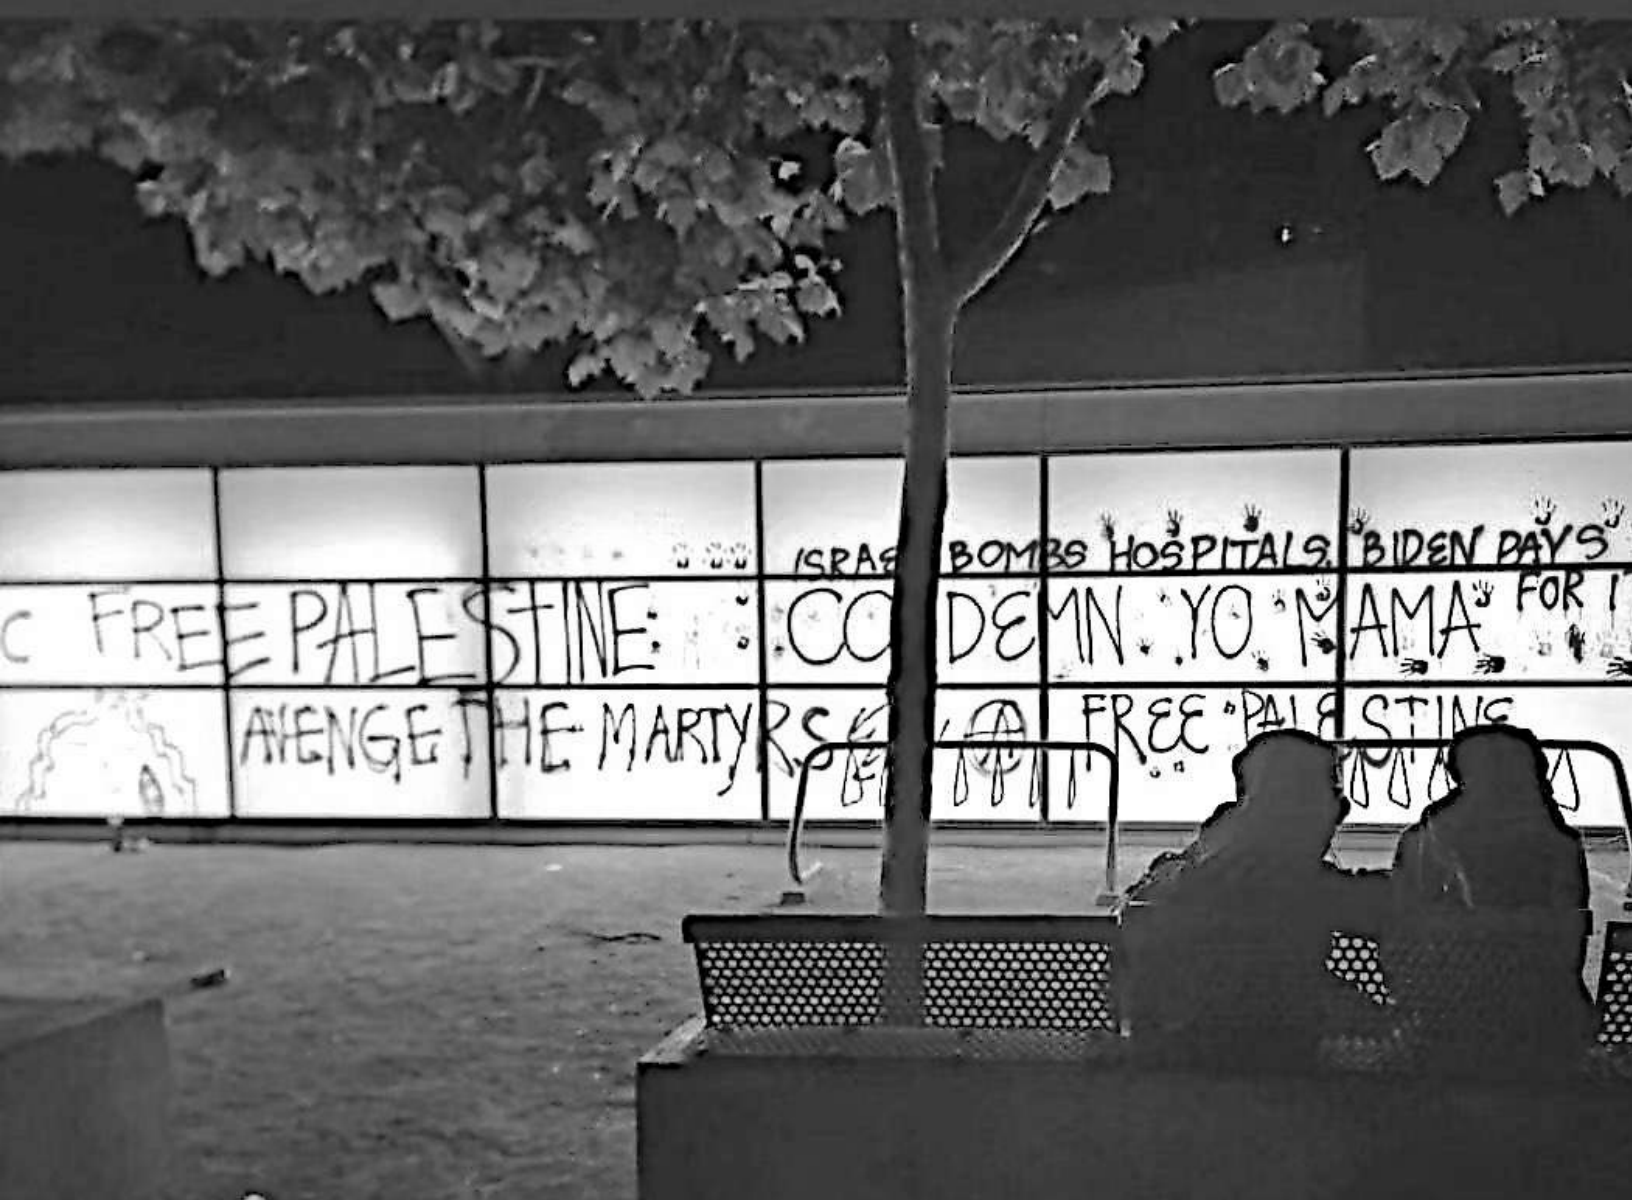 ISRAE BOMBS HOSPITALS. BIDEN PAYS
FOR IT
C FREE PALESTINE CONDEMN YO MAMA
AVENGE THE MARTYRS FREE PALESTINE